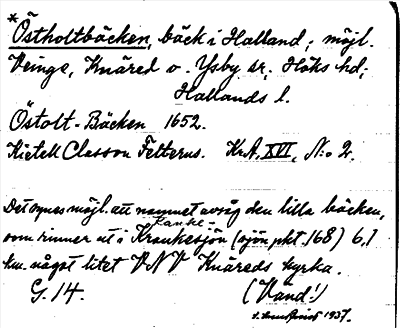 *Östholtbäcken, bäck i Halland; möjl.
Veinge, Knäred o. Ysby sr, Höks hd;
Hallands l.
Östolt-Bäcken 1652.
Kietell Classon Felterus. KrA, XVI, No 2.
Det synes möjl. att namnet avsåg den lilla bäcken,
Kanke-
som rinner ut i Krankesjön (sjön pkt. 168) 6,1
km. något litet VNV Knäreds kyrka.
G. 14. (Vänd!)
1937.